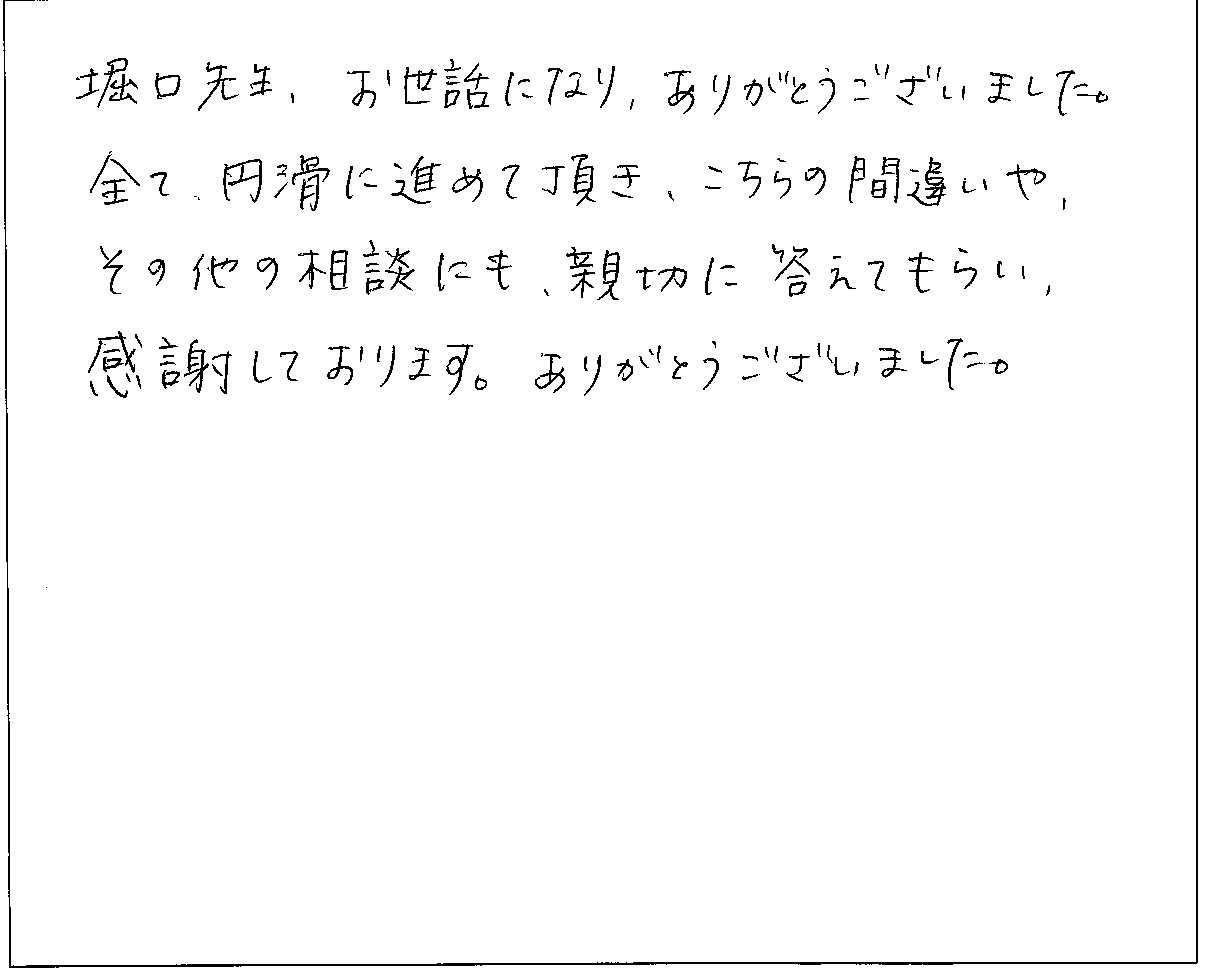 堀口先生、お世話になり、ありがとうございました。
全て、円滑に進めて頂き、こちらの間違いや、
その他の相談にも、親切に答えてもらい、
感謝しております。ありがとうございました。